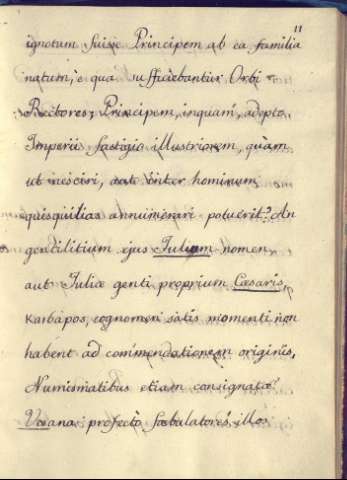 11
ignotum fuisse Principem ab ea familia
natum, e qua sufficiebantur Orbi
Rectores; Principem, inquam, adepto
Imperii fastigio illustriorem, quàm
ut nesciri, aut inter hominum
quisquilias annumerari potuerit? An
gentilitium ejus Julium nomen,
aut Juliæ genti proprium Cæsaris,
cognomen satis momenti non
habent ad commendationem originis,
Numismatibus etiam consignatæ?
Vana profectò fabulatores illos